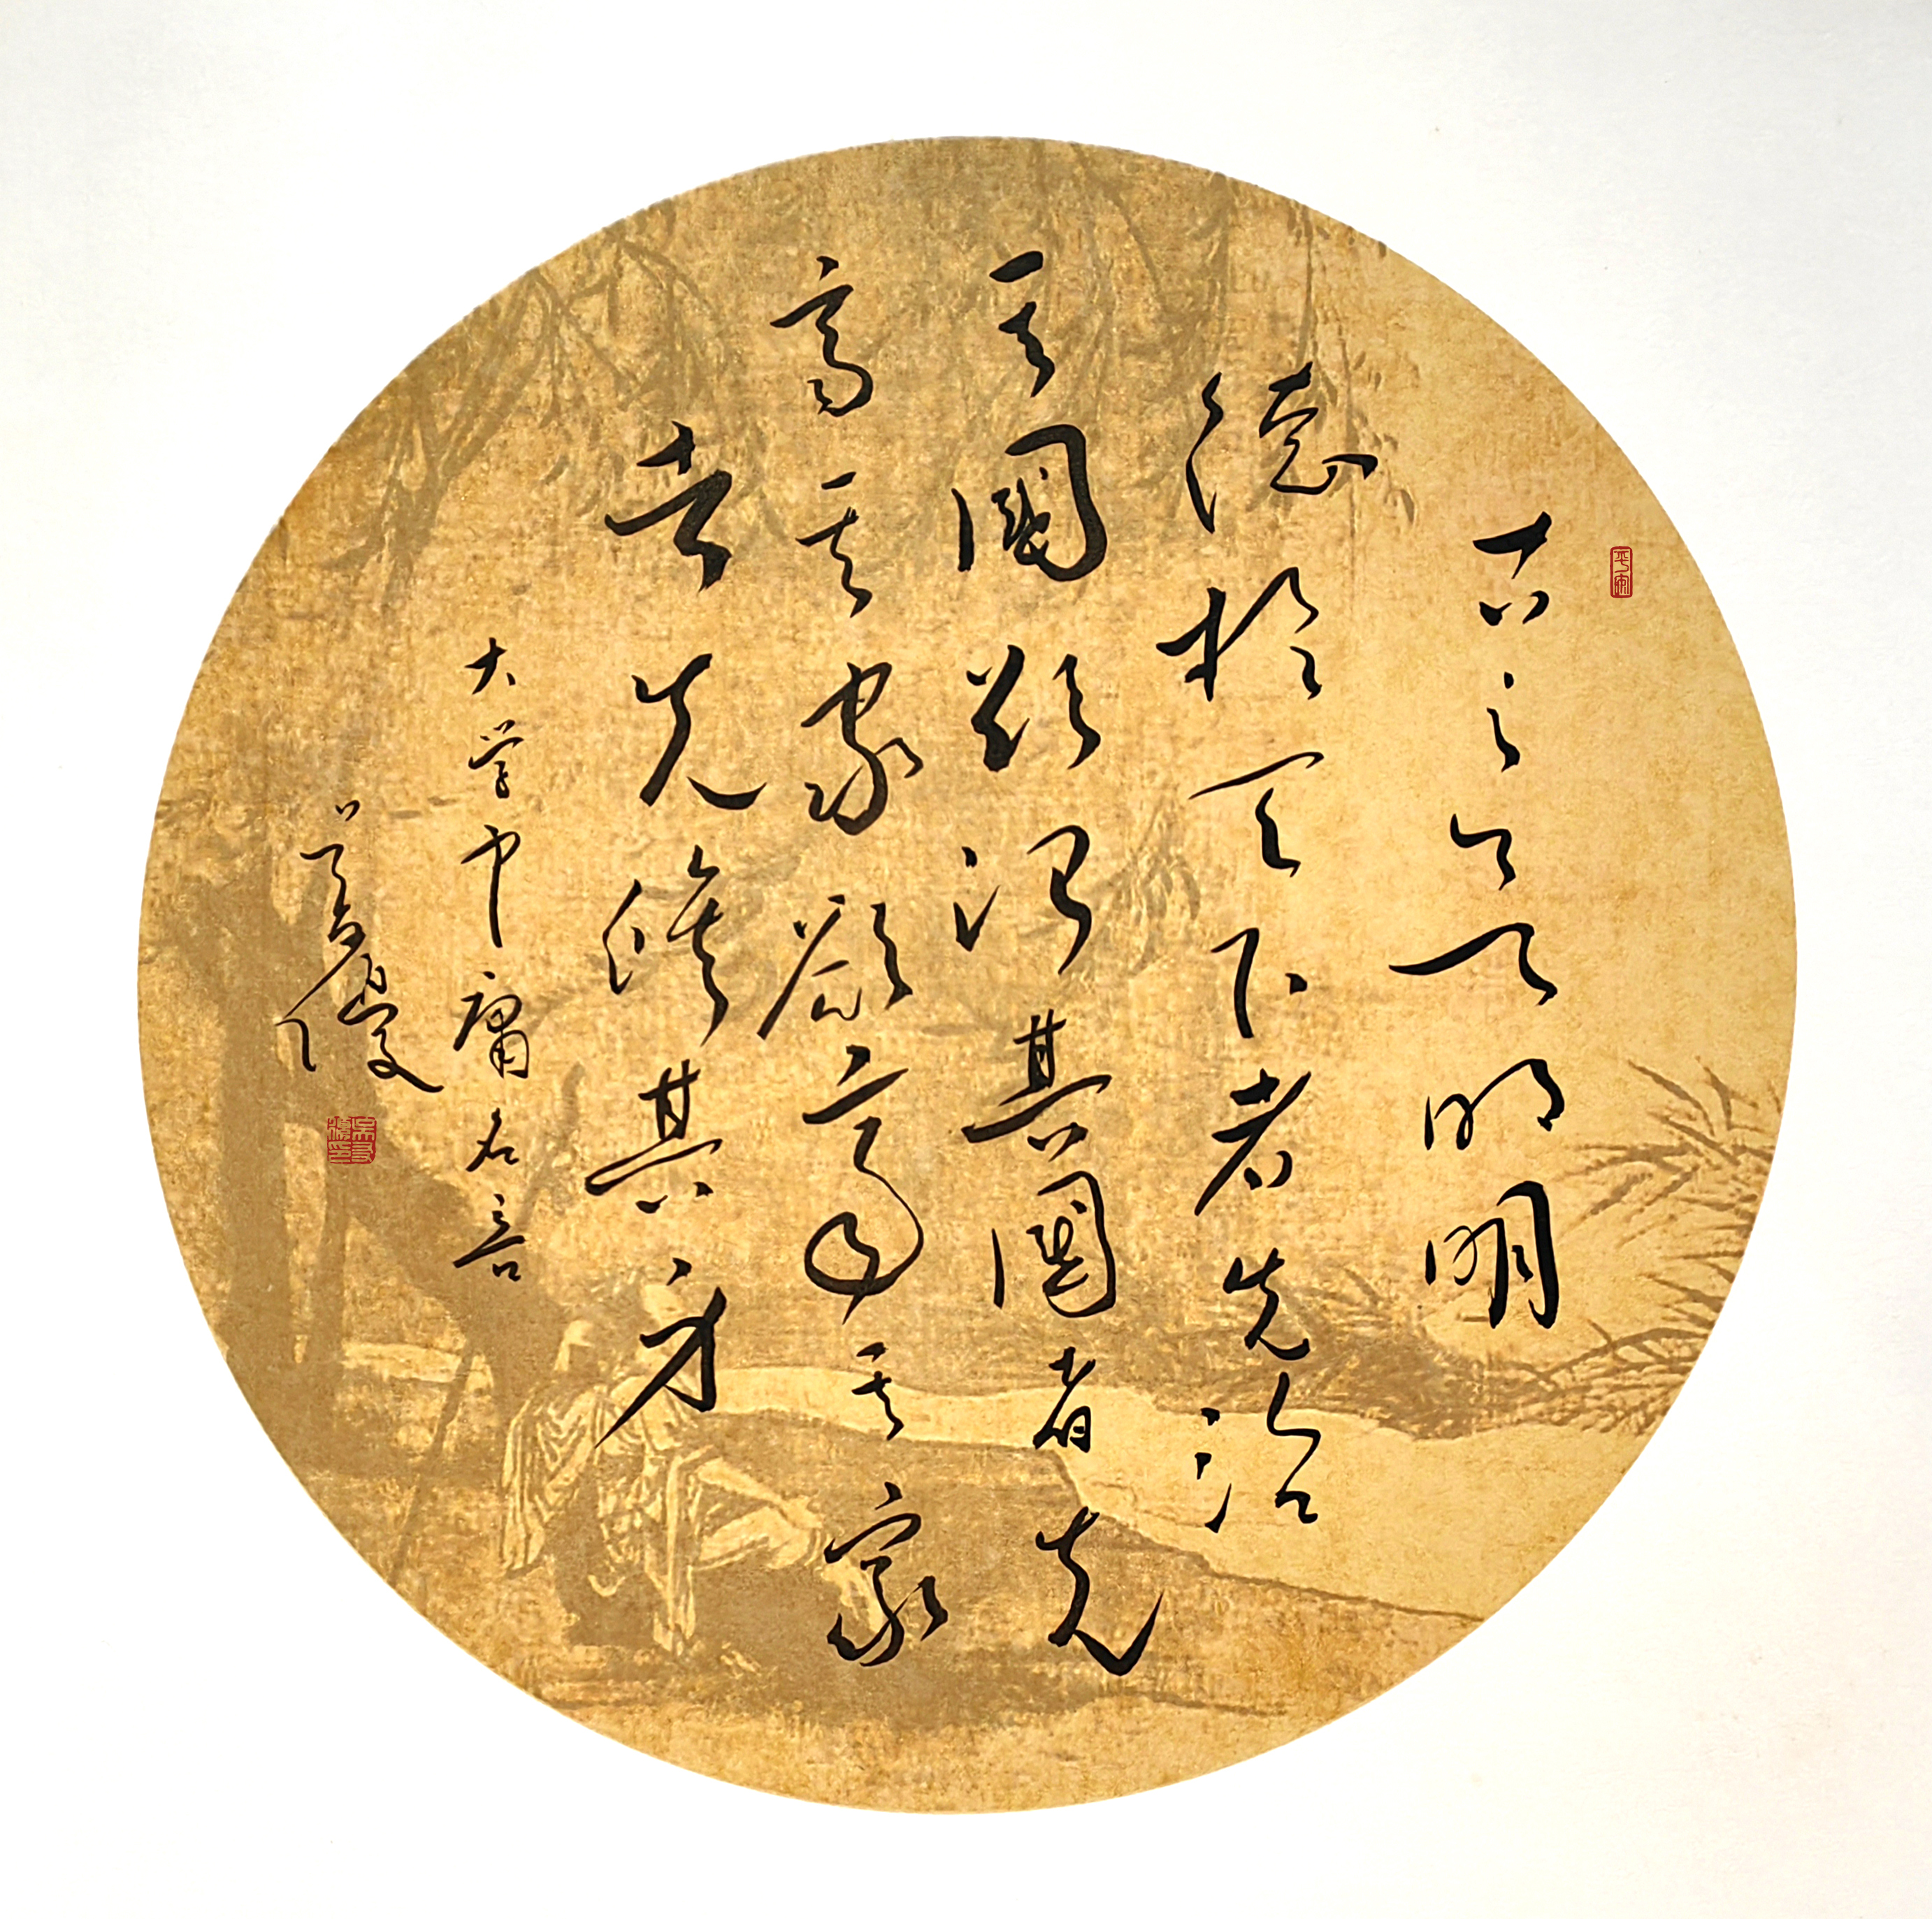 平安
古之欲明明
德於天下者先治
其國欲治其國者先
齊其家欲齊其家
者先修其身
大学中庸名言